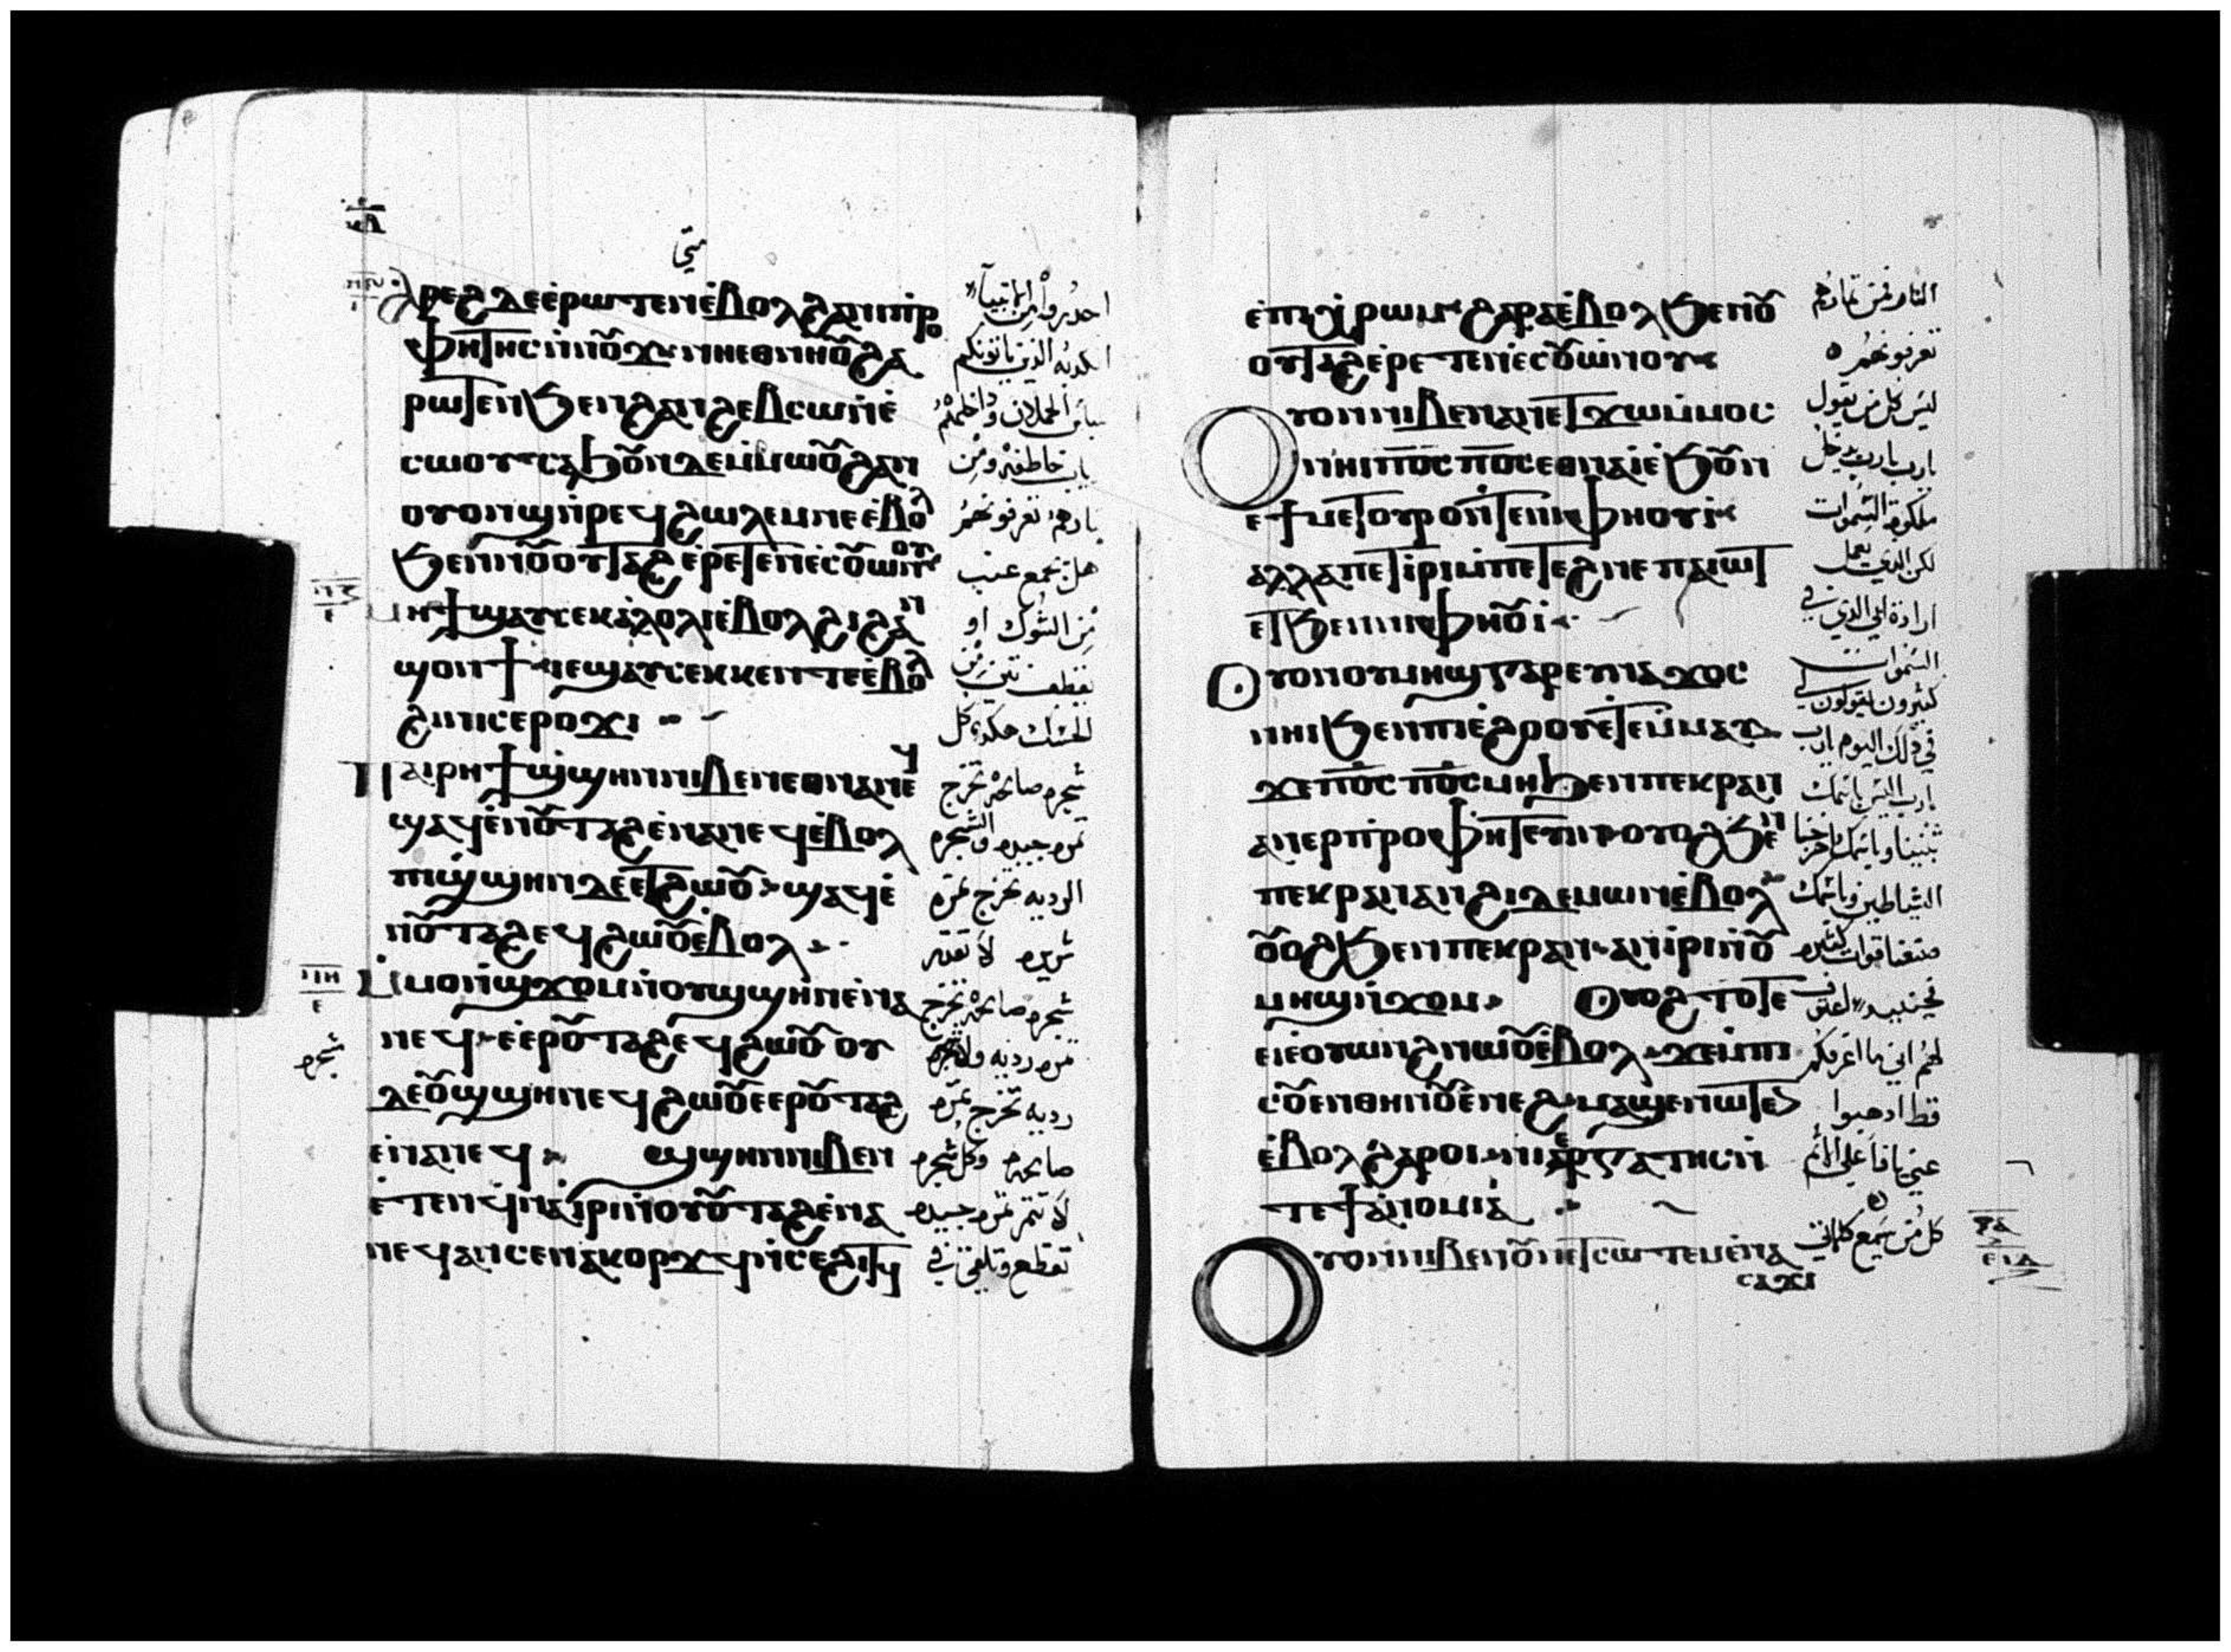 متى
ⲁⲣⲉϩ ⲇⲉ ⲉⲣⲱⲧⲉⲛ ⲉⲃⲟⲗ ϩⲁ ⲛⲓⲡⲣⲟ
ⲫⲏⲧⲏⲥ ⲛⲛⲟⲩϫ ⲛⲏ ⲉⲑⲛⲏⲟⲩ ϩⲁ
ⲣⲱⲧⲉⲛ ϧⲉⲛ ϩⲁⲛϩⲉⲃⲥⲱ ⲛⲉ
ⲥⲱⲟⲩ ⲥⲁϧⲟⲩⲛ ⲇⲉ ⲙⲙⲱⲟⲩ ϩⲁⲛ
ⲟⲩⲱⲛϣ ⲛⲣⲉϥϩⲱⲗⲉⲙ ⲛⲉ ⲉⲃⲟⲗ
ϧⲉⲛ ⲛⲟⲩⲟⲩⲧⲁϩ ⲉⲣⲉⲧⲉⲛⲉⲥⲟⲩⲱⲛⲟⲩ
ⲙⲏϯ ϣⲁⲩⲥⲉⲕ ⲁⲗⲟⲗⲓ ⲉⲃⲟⲗ ϩⲓ ϩⲁⲛ
ϣⲟⲛϯ ⲓⲉ ϣⲁⲩⲥⲉⲕ ⲕⲉⲛⲧⲉ ⲉⲃⲟⲗ
ϩⲓ ⲛⲓⲥⲉⲣⲟϫⲓ
ⲡⲁⲓⲣⲏϯ ϣϣⲏⲛ ⲛⲓⲃⲉⲛ ⲉⲑⲛⲁⲛⲉϥ
ϣⲁϥⲉⲛⲟⲩⲧⲁϩ ⲉⲛⲁⲛⲉϥ ⲉⲃⲟⲗ
ⲡⲓϣϣⲏⲛ ⲇⲉ ⲉⲧϩⲱⲟⲩ ϣⲁϥⲉ
ⲛⲟⲩⲧⲁϩ ⲉϥϩⲱⲟⲩ ⲉⲃⲟⲗ
ⲙⲙⲟⲛ ϣϫⲟⲙ ⲛⲟⲩϣϣⲏⲛ ⲉⲛⲁ
ⲛⲉϥ ⲉⲉⲣⲟⲩⲧⲁϩ ⲉϥϩⲱⲟⲩ ⲟⲩ
ⲇⲉ ⲟⲩϣϣⲏⲛ ⲉϥϩⲱⲟⲩ ⲉⲉⲣⲟⲩⲧⲁϩ
ⲉⲛⲁⲛⲉϥ ϣϣⲏⲛ ⲛⲓⲃⲉⲛ
ⲉⲧⲉⲛϥⲛⲁⲓⲣⲓ ⲛⲟⲩⲟⲩⲧⲁϩ ⲉⲛⲁ
ⲛⲉϥ ⲁⲛ ⲥⲉⲛⲁⲕⲟⲣϫϥ ⲛⲥⲉϩⲓⲧϥ
احدروا من الانبياء
الكدبه الذين ياتونكم
بلباس الحملان وداخلهم
دياب خاطفه ومن
ثمارهم تعرفونهم
هل يجمع عنب
من الشوك او
يقطف تين من
الحسك هكدى كل
شجره صالحه تخرج
ثمره جيده والشجره
الرديه تخرج ثمره
شريره لا تقدر
شجره صالحه تخرج
ثمره رديه ولا شجره
رديه تخرج ثمره
صالحه وكل شجره
لا تثمر ثمره جيده
تقطع وتلقى في
شجره
ⲉⲡⲓⲭⲣⲱⲙ ϩⲁⲣⲁ ⲉⲃⲟⲗ ϧⲉⲛ ⲛⲟⲩ
ⲟⲩⲧⲁϩ ⲉⲣⲉⲧⲉⲛⲉⲥⲟⲩⲱⲛⲟⲩ
ⲟⲩⲟⲛ ⲛⲓⲃⲉⲛ ⲁⲛ ⲉⲧϫⲱ ⲙⲙⲟⲥ
ⲛⲏⲓ ⲡⲟⲥ ⲡⲟⲥ ⲉⲑⲛⲁⲓ ⲉϧⲟⲩⲛ
ⲉϯⲙⲉⲧⲟⲩⲣⲟ ⲛⲧⲉ ⲛⲓⲫⲏⲟⲩⲓ
ⲁⲗⲗⲁ ⲡⲉⲧⲓⲣⲓ ⲙⲡⲉⲧⲉϩⲛⲉ ⲡⲁⲓⲱⲧ
ⲉⲧϧⲉⲛ ⲛⲓⲫⲏⲟⲩⲓ
ⲟⲩⲟⲛ ⲟⲩⲙⲏϣ ⲅⲁⲣ ⲉⲩⲛⲁϫⲟⲥ
ⲛⲏⲓ ϧⲉⲛ ⲡⲓⲉϩⲟⲟⲩ ⲉⲧⲉⲙⲙⲁⲩ
ϫⲉ ⲡⲟⲥ ⲡⲟⲥ ⲙⲏ ϧⲉⲛ ⲡⲉⲕⲣⲁⲛ
ⲁⲛⲉⲣⲡⲣⲟⲫⲏⲧⲉⲩⲓⲛ ⲟⲩⲟϩ ϧⲉⲛ
ⲡⲉⲕⲣⲁⲛ ⲁⲛϩⲓ ⲇⲉⲙⲱⲛ ⲉⲃⲟⲗ
ⲟⲩⲟϩ ϧⲉⲛ ⲡⲉⲕⲣⲁⲛ ⲁⲛⲓⲣⲓ ⲛⲟⲩ
ⲙⲏϣ ⲛϫⲟⲙ ⲟⲩⲟϩ ⲧⲟⲧⲉ
ⲉⲓⲉⲟⲩⲱⲛϩ ⲛⲱⲟⲩ ⲉⲃⲟⲗ ϫⲉ ⲙⲡⲓ
ⲥⲟⲩⲉⲛ ⲑⲏⲛⲟⲩ ⲉⲛⲉϩ ⲙⲁϣⲉⲛⲱⲧⲉⲛ
ⲉⲃⲟⲗ ϩⲁⲣⲟⲓ ⲛⲓⲉⲣⲅⲁⲧⲏⲥ ⲛ
ⲧⲉ ϯⲁⲛⲟⲙⲓⲁ
ⲟⲩⲟⲛ ⲛⲓⲃⲉⲛ ⲟⲩⲛ ⲉⲧⲥⲱⲧⲉⲙ ⲉⲛⲁ
ⲥⲁϫⲓ
النار فمن ثمارهم
تعرفونهم
ليس كل من يقول
يارب يارب يدخل
ملكوت السموات
لكن الذي يعمل
ارادة ابي الذي في
السموات
كثيرون يقولون لي
في ذلك اليوم يارب
يارب اليس باسمك
تنبينا وباسمك اخرجنا
الشياطين وباسمك
صنعنا قوات كثيره
فحينيد اعترف
لهم اني ما اعرفكم
قط ادهبوا
عني يا فاعلي الاثم
كل من يسمع كلماتي